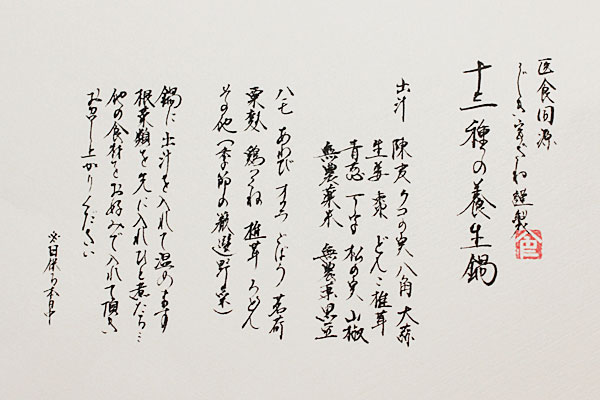 医食同源
謹製
十二種の養生鍋
出汁 陳皮 クコの実 八角 大蒜
生姜 棗 どんこ椎茸
青葱 丁子 松の実 山椒
無農薬米 無農薬黒豆
ハモ あわび オクラ ごぼう 茗荷
粟麩 鶏つくね 椎茸 うどん
その他(季節の厳選野菜)
鍋に出汁を入れて温めます
根菜類を先に入れひと煮たち…
他の食材をお好みで入れて頂き
お召し上がりください
※日保ち本日中